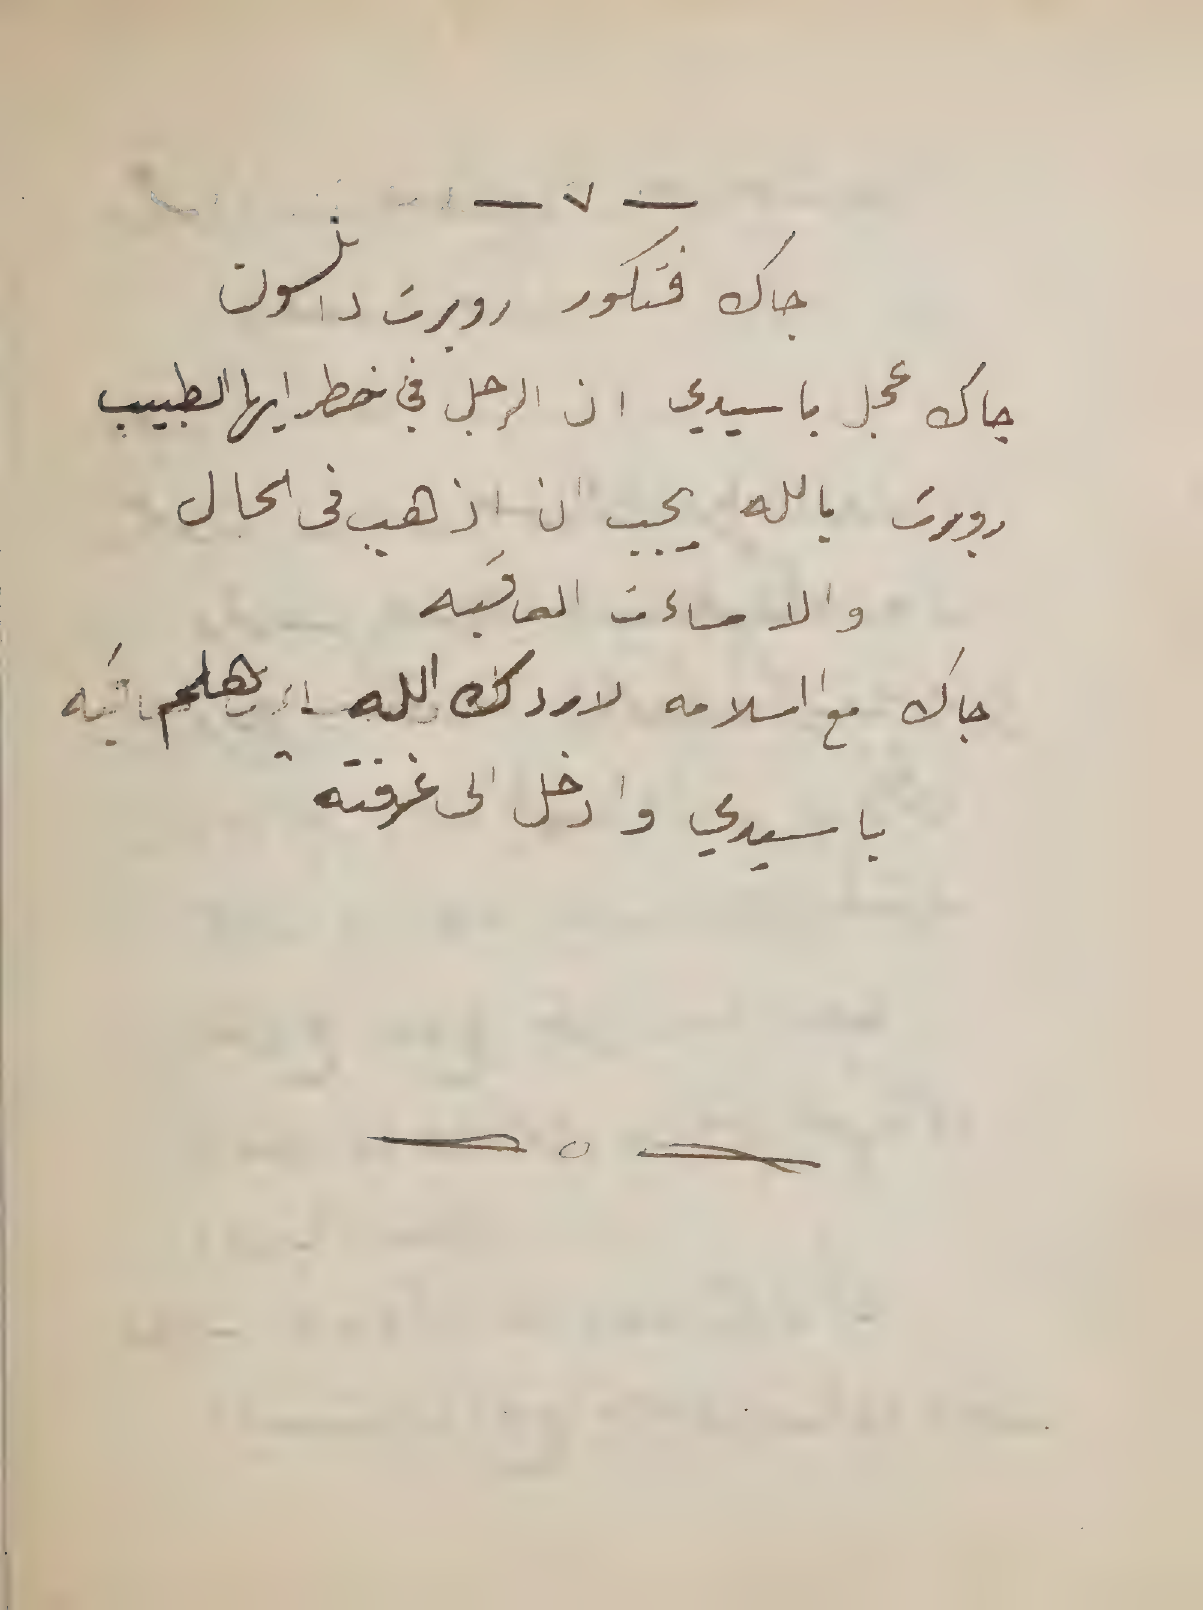 — ٧ —
جاك فتكور روبرت دانلسون
جاك عجل يا سيدي ان الرجل في خطر ايها الطبيب
روبرت يالله يجب ان اذهب فى الحال
والا ساءت العاقبه
جاك مع السلامه لا ردك الله هلم
يا سيدي وادخل الى غرفته